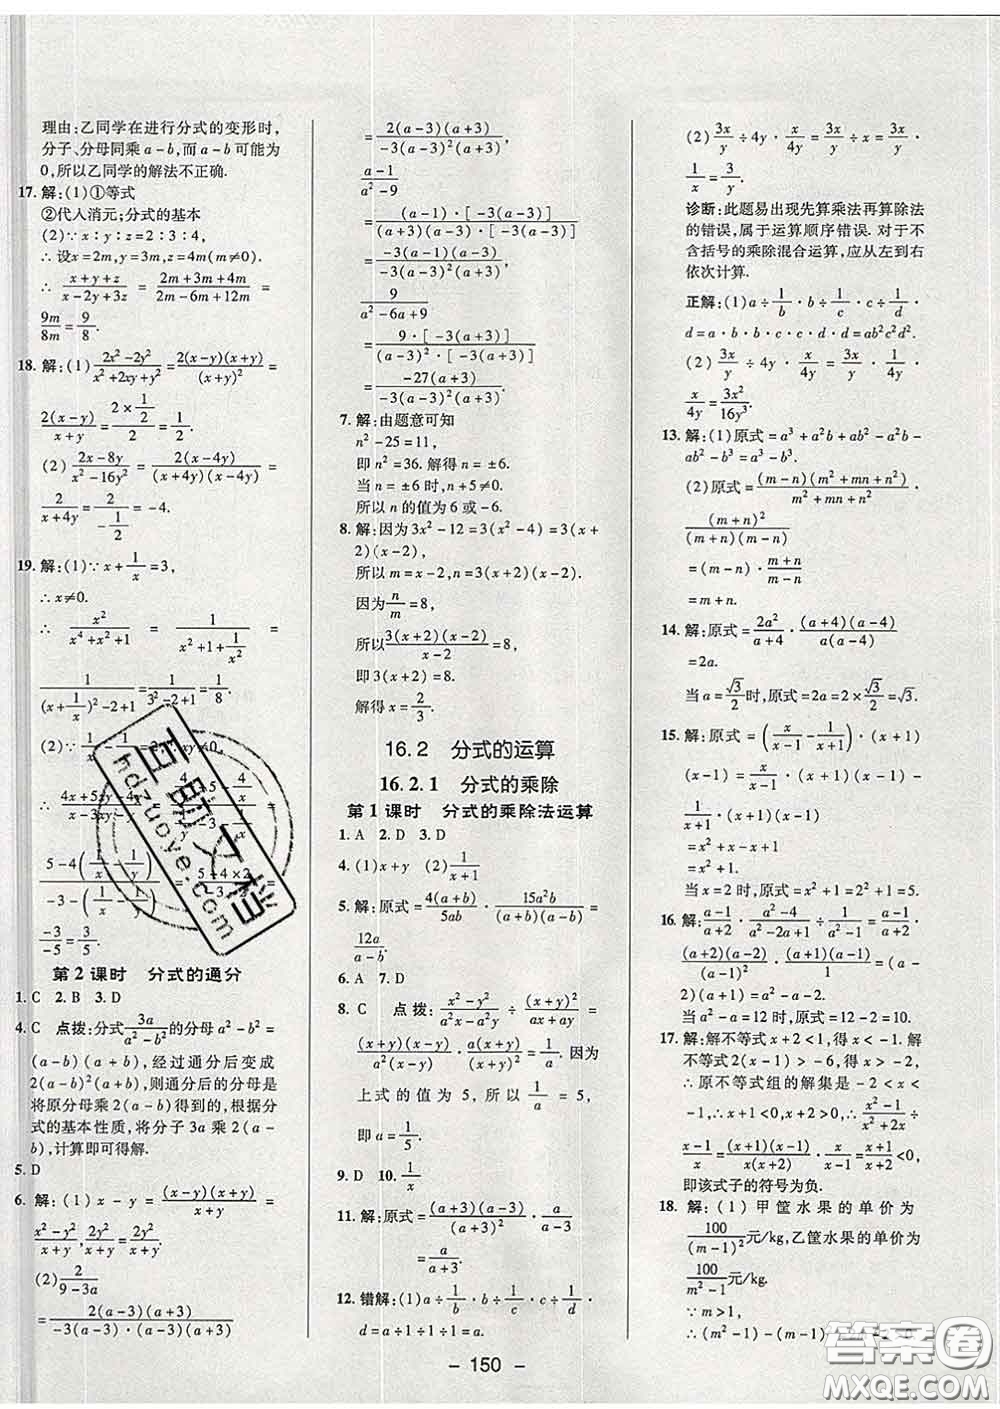 理由:乙同学在进行分式的变形时,
分子、分母同乘 a-b,而 a-b 可能为
0,所以乙同学的解法不正确.
17. 解:(1)①等式
②代人消元;分式的基本
(2)∵x∶y∶z=2∶3∶4,
∴设x=2m,y=3m,z=4m(m≠0).
∴ (x+y+z)/(x-2y+3z) = (2m+3m+4m)/(2m-6m+12m) =
9m/8m = 9/8.
18. 解:(1) (2x²-2y²)/(x²+2xy+y²) = 2(x-y)(x+y)/(x+y)² =
2(x-y)/(x+y) = (2×1/2)/2 = 1/2.
(2) (2x-8y)/(x²-16y²) = 2(x-4y)/((x+4y)(x-4y)) =
2/(x+4y) = 2/(-1/2) = -4.
19. 解:(1)∵x+1/x=3,
∴x≠0.
∴ x²/(x⁴+x²+1) = 1/(x²+1+1/x²) =
1/((x+1/x)²-2+1) = 1/(3²-2+1) = 1/8.
-3/-5 = 3/5.
第 2 课时 分式的通分
1. C 2. B 3. D
4. C 点拨:分式3a/(a²-b²)的分母 a²-b²=
(a-b)(a+b),经过通分后变成
2(a-b)²(a+b),则通分后的分母是
将原分母乘 2(a-b)得到的,根据分
式的基本性质,将分子 3a 乘 2(a-
b),计算即可得解.
5. D
6. 解:(1) x-y = (x-y)(x+y)/(x+y) =
(x²-y²)/(x+y), 2y²/(x+y) = 2y²/(x+y).
(2) 2/(9-3a)
= 2(a-3)(a+3)/(-3(a-3)·(a-3)(a+3))
= 2(a-3)(a+3)/(-3(a-3)²(a+3)),
(a-1)/(a²-9)
= (a-1)·[-3(a-3)]/((a+3)(a-3)·[-3(a-3)])
= -3(a-1)(a-3)/(-3(a-3)²(a+3)),
9/(a²-6a+9)
= 9·[-3(a+3)]/((a-3)²·[-3(a+3)])
= -27(a+3)/(-3(a-3)²(a+3)).
7. 解:由题意可知
n²-25=11,
即 n²=36. 解得 n=±6.
当 n=±6 时,n+5≠0.
所以 n 的值为 6 或 -6.
8. 解:因为 3x²-12=3(x²-4)=3(x+
2)(x-2),
所以 m=x-2,n=3(x+2)(x-2).
因为n/m=8,
所以3(x+2)(x-2)/(x-2)=8,
即 3(x+2)=8.
解得 x=2/3.
16.2 分式的运算
16.2.1 分式的乘除
第 1 课时 分式的乘除法运算
1. A 2. D 3. D
4. (1)x+y (2)1/(x+1)
5. 解:原式=4(a+b)/5ab · 15a²b/((a+b)(a-b)) =
12a/(a-b).
6. A 7. D
8. C 点拨:(x²-y²)/(a²x-a²y) ÷ (x+y)²/(ax+ay) =
(x+y)(x-y)/(a²(x-y)) · a(x+y)/(x+y)² = 1/a. 因为
上式的值为 5,所以 1/a=5,
即 a=1/5.
9. D 10. 1/x
11. 解:原式=(a+3)(a-3)/(a+3)² · a/(a-3)
= a/(a+3).
12. 错解:(1)a÷1/b·b÷1/c·c÷1/d·
d=a÷1÷1÷1=a.
(2) 3x/y ÷ 4y · x/4y = 3x/y ÷ x =
1/x = 3/y.
诊断:此题易出现先算乘法再算除法
的错误,属于运算顺序错误. 对于不
含括号的乘除混合运算,应从左到右
依次计算.
正解:(1)a÷1/b·b÷1/c·c÷1/d·
d=a·b·b·c·c·d·d=ab²c²d².
(2) 3x/y ÷ 4y · x/4y = 3x/y · 1/4y ·
x/4y = 3x²/16y³.
13. 解:(1)原式=a³+a²b+ab²-a²b-
ab²-b³=a³-b³.
(2)原式=(m-n)(m²+mn+n²)/(m²+mn+n²) ·
(m+n)²/((m+n)(m-n))
=(m-n)·(m+n)/(m-n)
=m+n.
14. 解:原式=2a²/(a+4) · (a+4)(a-4)/(a(a-4))
=2a.
当 a=√3/2时,原式=2a=2×√3/2=√3.
15. 解:原式=(x/(x-1) - x/(x+1))÷
(x-1)=x/(x-1)·
1/(x+1)·(x+1)(x-1)
=x²+x-x+x
=x²+x.
当 x=2 时,原式=2²+1=5.
16. (a-1)/(a+2) · (a²-4)/(a²-2a+1) ÷ 1/(a²-1) = (a-1)/(a+2) ·
(a+2)(a-2)/(a-1)² · (a+1)(a-1) = (a-
2)(a+1)=a²-a-2.
当 a²-a=12 时,原式=12-2=10.
17. 解:解不等式 x+2<1,得 x<-1. 解
不等式 2(x-1)>-6,得 x>-2.
∴原不等式组的解集是 -2<x<
-1,∴x+1<0,x+2>0,∴(x²-1)/(x²+2x)÷
(x-1)/x = (x+1)(x-1)/(x(x+2)) · x/(x-1) = (x+1)/(x+2)<0,
即该式子的符号为负.
18. 解:(1)甲筐水果的单价为
100/(m-1)²元/kg,乙筐水果的单价为
100/(m²-1)元/kg.
∵m>1,
∴(m²-1)-(m-1)²
- 150 -
百助文档
hdzuoye.com
答案圈
MXQE.COM